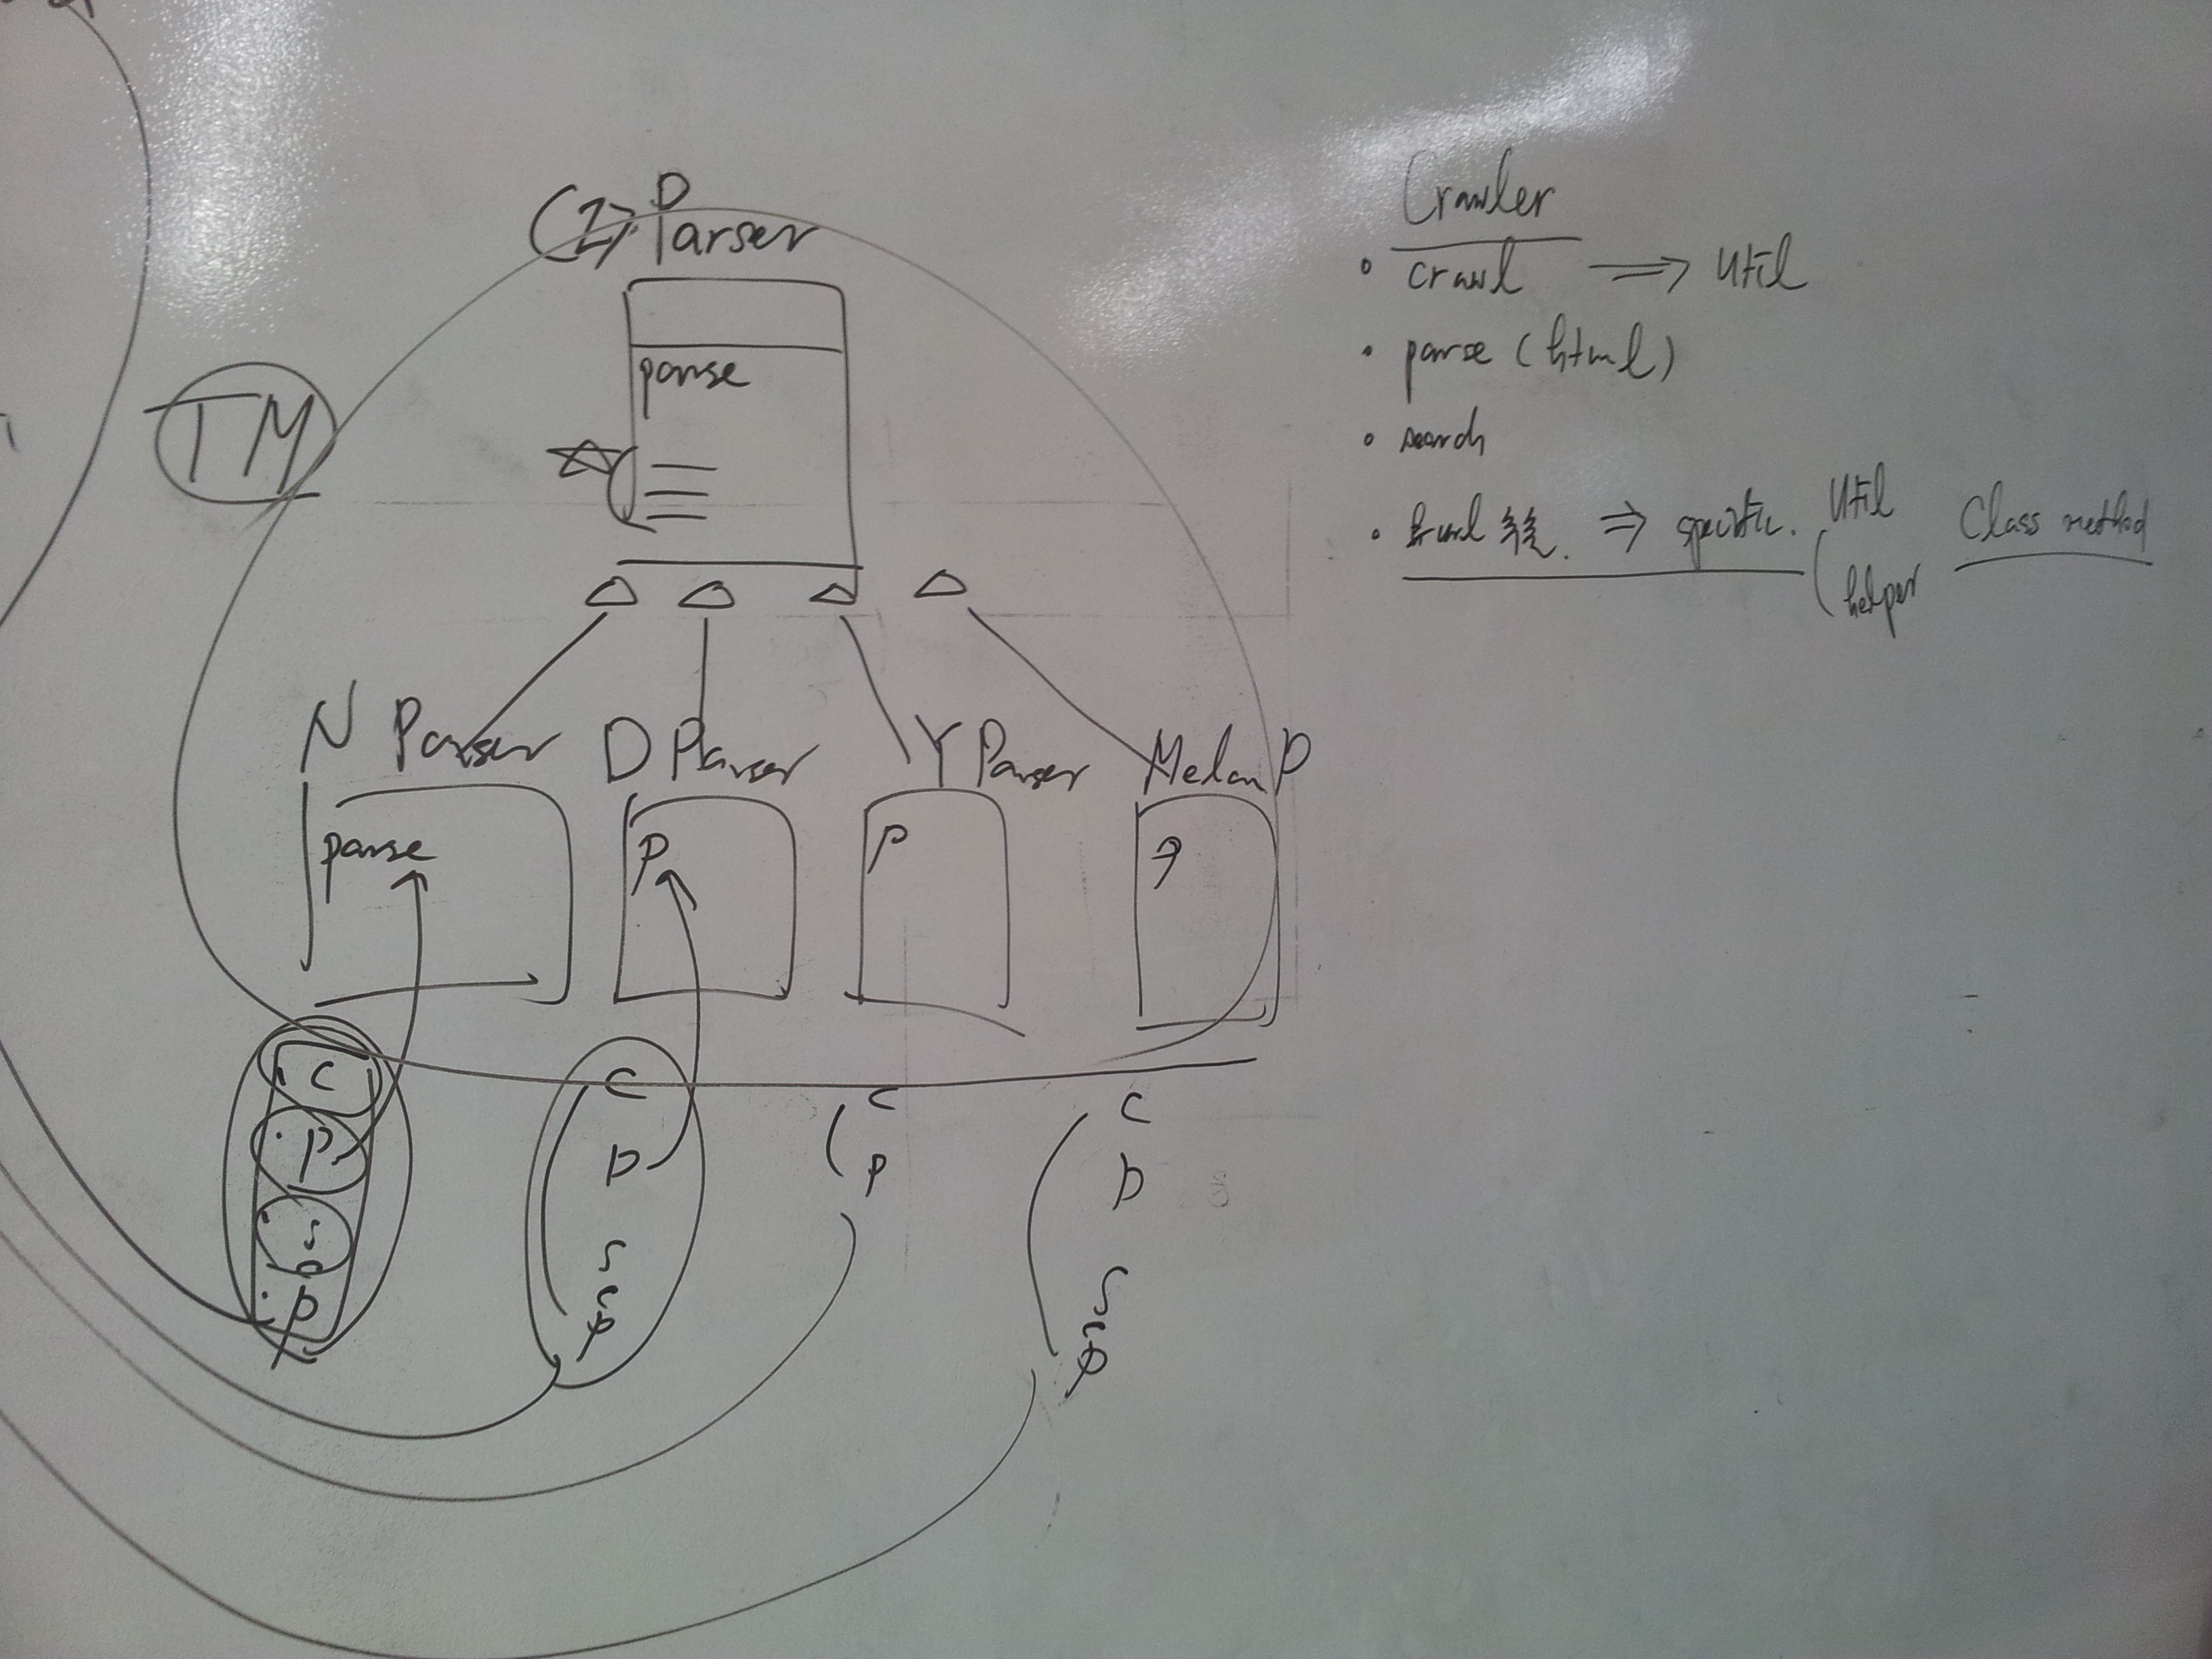 (I) Parser
parse
TM
N Parser
D Parser
Y Parser
Melon P
parse
P
P
P
C
P
S
P
C
P
S
C
P
C
P
S
P
Crawler
• crawl ⇒ Util
• parse (html)
• search
⇒ specific. Util
helper
Class method